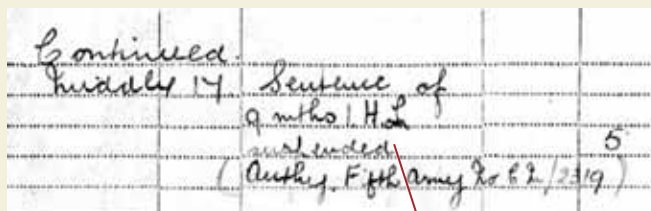 Continued.
Middlex 17 Sentence of
9 mths I.H.L
suspended 5
(Authy. Fifth Army No /2319)